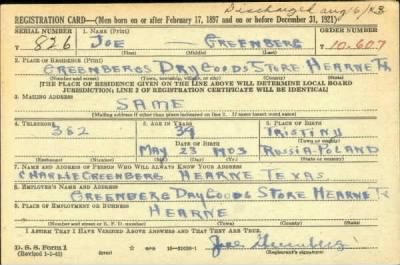 Discharged Aug 6/43
REGISTRATION CARD—(Men born on or after February 17, 1897 and on or before December 31, 1921)
SERIAL NUMBER 1. NAME (Print) ORDER NUMBER
T 826 JOE — GREENBERG T 10,607
(First) (Middle) (Last)
2. PLACE OF RESIDENCE (Print)
GREENBERGS DRY GOODS STORE HEARNE TX
(Number and street) (Town, township, village, or city) (County) (State)
[THE PLACE OF RESIDENCE GIVEN ON THE LINE ABOVE WILL DETERMINE LOCAL BOARD
JURISDICTION; LINE 2 OF REGISTRATION CERTIFICATE WILL BE IDENTICAL]
3. MAILING ADDRESS
SAME
[Mailing address if other than place indicated on line 2. If same insert word same]
4. TELEPHONE 5. AGE IN YEARS 6. PLACE OF BIRTH
382 39
DATE OF BIRTH (Town or county)
MAY 23 1903 RUSSIA-POLAND
(Exchange) (Number) (Mo.) (Day) (Yr.) (State or country)
7. NAME AND ADDRESS OF PERSON WHO WILL ALWAYS KNOW YOUR ADDRESS
CHARLIE GREENBERG HEARNE TEXAS
8. EMPLOYER'S NAME AND ADDRESS
GREENBERG DRY GOODS STORE HEARNE TX
9. PLACE OF EMPLOYMENT OR BUSINESS
HEARNE
(Number and street or R. F. D. number) (Town) (County) (State)
I AFFIRM THAT I HAVE VERIFIED ABOVE ANSWERS AND THAT THEY ARE TRUE.
D. S. S. Form 1
(Revised 1-1-42) (over) Joe Greenberg
(Registrant's signature)